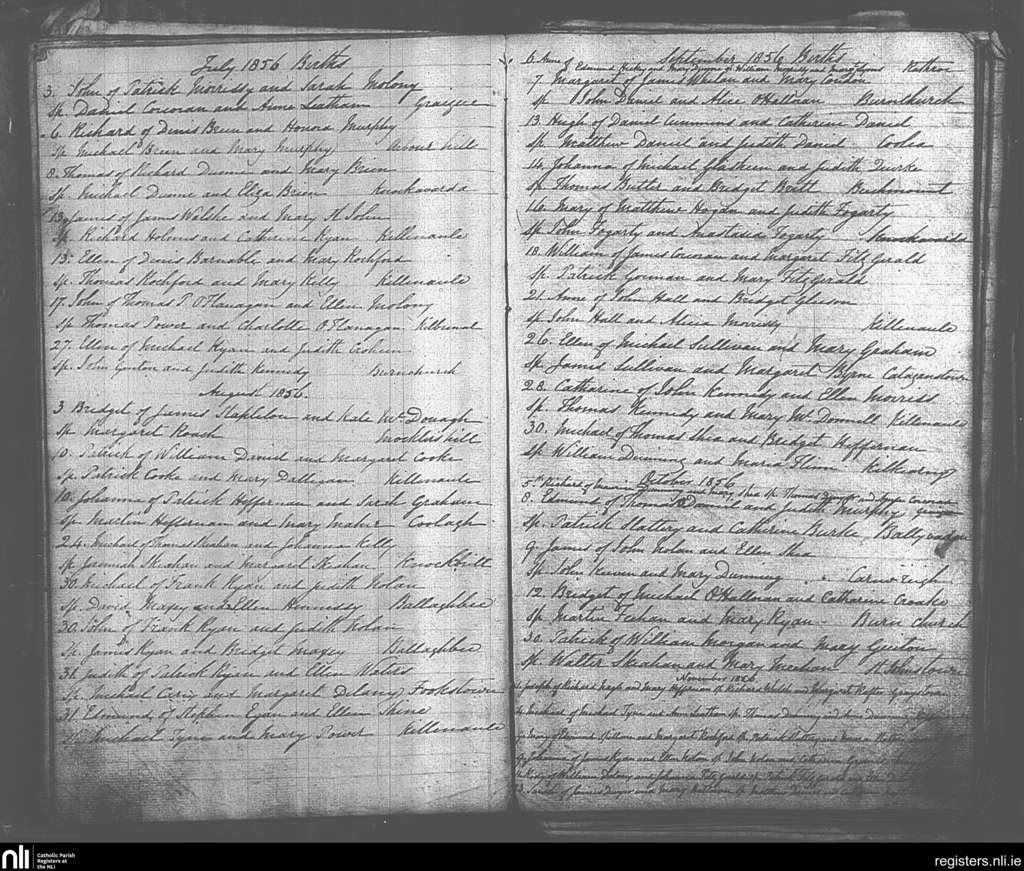 July 1856 Births
3. John of Patrick Morrissy and Sarah Molony
Sp. Daniel Corcoran and Anne Leatham Graigue
6. Richard of Denis Breen and Honora Murphy
Sp. Michael Breen and Mary Murphy
8. Thomas of Richard Dunne and Mary Breen
Sp. Michael Dunne and Eliza Breen Knockavarda
13. James of James Walshe and Mary St John
Sp. Richard Holmes and Catherine Ryan Killenaule
13. Ellen of Denis Barnable and Mary Rochford
Sp. Thomas Rochford and Mary Kelly Killenaule
17. John of Thomas P. O'Flanagan and Ellen Molony
Sp. Thomas Power and Charlotte O'Flanagan
27. Ellen of Michael Ryan and Judith
Sp. John and Judith Kennedy Burnchurch
August 1856.
3 Bridget of James Stapleton and Kate McDonagh
Sp. Margaret Roach Mocklershill
10. Patrick of William Daniel and Margaret Cooke
Sp. Patrick Cooke and Mary Killenaule
10. Johanna of Patrick Heffernan and Sarah Graham
Sp. Martin Heffernan and Mary Maher Coolagh
24. Michael of Thomas Skehan and Johanna Kelly
Sp. Jeremiah Skehan and Margaret Skehan
30. Michael of Frank Ryan and Judith Nolan
Sp. David Magey and Ellen Hennessy Ballaghbee
30. John of Frank Ryan and Judith Nolan
Sp. James Ryan and Bridget Magey Ballaghbee
31. Judith of Patrick Ryan and Ellen Waters
Sp. Michael and Margaret Delany Fookstown
31. Edmund of Stephen Egan and Ellen Skine
Sp. Michael Tynn and Mary Power Killenaule
September 1856 Births
6. Anne of Edmund Hickey and Mary
7. Margaret of James Whelan and Mary Condon
Sp John Daniel and Alice O'Halloran Burnchurch
13. Hugh of Daniel Cummons and Catherine Daniel
Sp. Matthew Daniel and Judith Daniel
14. Johanna of Michael and Judith Quirke
Sp. Thomas Butler and Bridget Beechmount
16. Mary of Matthew Hogan and Judith Fogarty
Sp. John Fogarty and Anastasia Fogarty Knockavarda
18. William of James Corcoran and Margaret Fitzgerald
Sp. Patrick Gorman and Mary Fitzgerald
21. Anne of John Hall and Bridget Gleeson
Sp. John Hall and Alicia Morrissy Killenaule
26. Ellen of Michael Sullivan and Mary Graham
Sp. James Sullivan and Margaret Byrne
28. Catharine of John Kennedy and Ellen Morriss
Sp. Thomas Kennedy and Mary McDonnell Killenaule
30. Michael of Thomas Shea and Bridget Heffernan
Sp William Dunning and Maria Flinn
October 1856
5th Richard of Shea Sp. Thomas
8. Edmund of Thomas Daniel and Judith Murphy
Sp. Patrick Slattery and Catherine Burke
9. James of John Nolan and Ellen Shea
Sp John and Mary Dunning
12. Bridget of Michael O'Halloran and Catharine Croake
Sp Martin and Mary Ryan. Burn Church
30. Patrick of William Morgan and Mary
Sp. Walter Skehan and Mary Meehan St. Johnstown
November 1856.
Joseph of Richard Nagle and Mary Heffernan Sp. Richard Walsh and Margaret
Michael of Michael Tynn and Anne Leatham Sp. Thomas Dunning and Anne Dunning
Mary of Edmund and Margaret Rochford Sp. Patrick Slattery and
Johanna of James Ryan and Ellen Sp. John Nolan and Catherine
of William Delany and Johanna Fitzgerald Sp. Patrick Fitzgerald and Ellen
Sarah of James Dwyer and Mary
nli Catholic Parish
Registers at
the NLI
registers.nli.ie